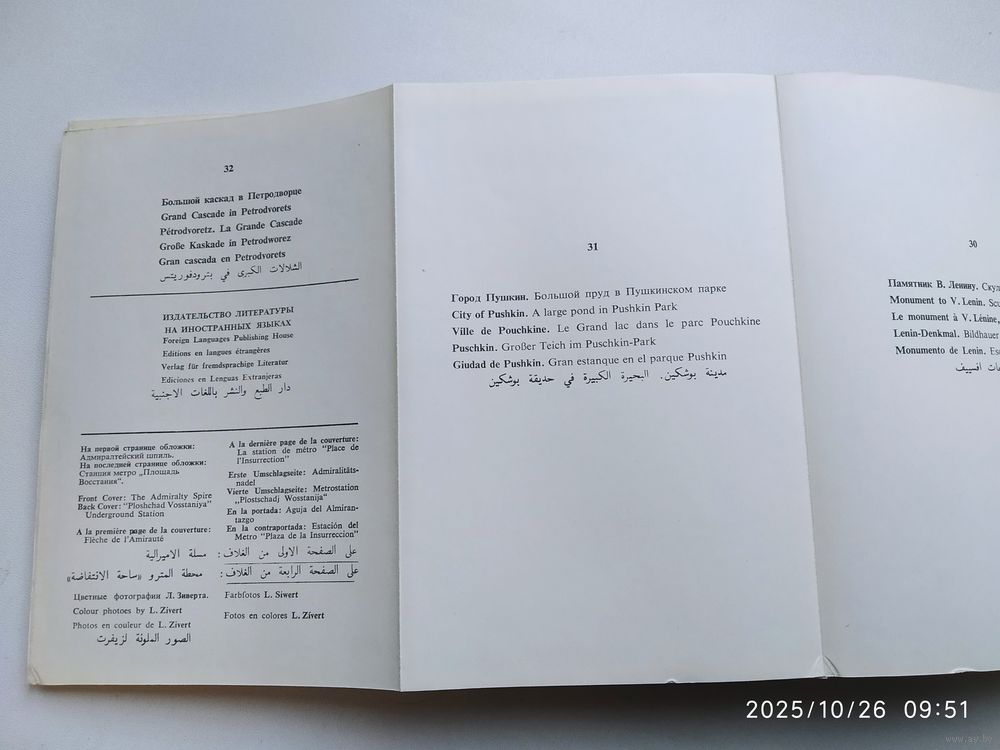 32
Большой каскад в Петродворце
Grand Cascade in Petrodvorets
Pétrodvoretz. La Grande Cascade
Große Kaskade in Petrodworez
Gran cascada en Petrodvorets
الشلالات الكبرى في بترودفوريتس
ИЗДАТЕЛЬСТВО ЛИТЕРАТУРЫ
НА ИНОСТРАННЫХ ЯЗЫКАХ
Foreign Languages Publishing House
Editions en langues étrangères
Verlag für fremdsprachige Literatur
Ediciones en Lenguas Extranjeras
دار الطبع والنشر باللغات الاجنبية
На первой странице обложки:
Адмиралтейский шпиль.
На последней странице обложки:
Станция метро „Площадь
Восстания".
Front Cover: The Admiralty Spire
Back Cover: "Ploshchad Vosstaniya"
Underground Station
A la première page de la couverture:
Flèche de l'Amirauté
A la dernière page de la couverture:
La station de métro "Place de
l'Insurrection"
Erste Umschlagseite: Admiralitäts-
nadel
Vierte Umschlagseite: Metrostation
„Plostschadj Wosstanija"
En la portada: Aguja del Almiran-
tazgo
En la contraportada: Estación del
Metro "Plaza de la Insurreccion"
على الصفحة الاولى من الغلاف: مسلة الاميرالية
على الصفحة الرابعة من الغلاف: محطة المترو «ساحة الانتفاضة»
Цветные фотографии Л. Зиверта.
Colour photoes by L. Zívert
Photos en couleur de L. Zivert
Farbfotos L. Siwert
Fotos en colores L. Zívert
الصور الملونة لزيفرت
31
Город Пушкин. Большой пруд в Пушкинском парке
City of Pushkin. A large pond in Pushkin Park
Ville de Pouchkine. Le Grand lac dans le parc Pouchkine
Puschkin. Großer Teich im Puschkin-Park
Giudad de Pushkin. Gran estanque en el parque Pushkin
مدينة بوشكين. البحيرة الكبيرة في حديقة بوشكين
30
Памятник В. Ленину. Скул
Monument to V. Lenin. Sc
Le monument à V. Lénine,
Lenin-Denkmal. Bildhauer
Monumento de Lenin. Es
2025/10/26 09:51
www.ay.by